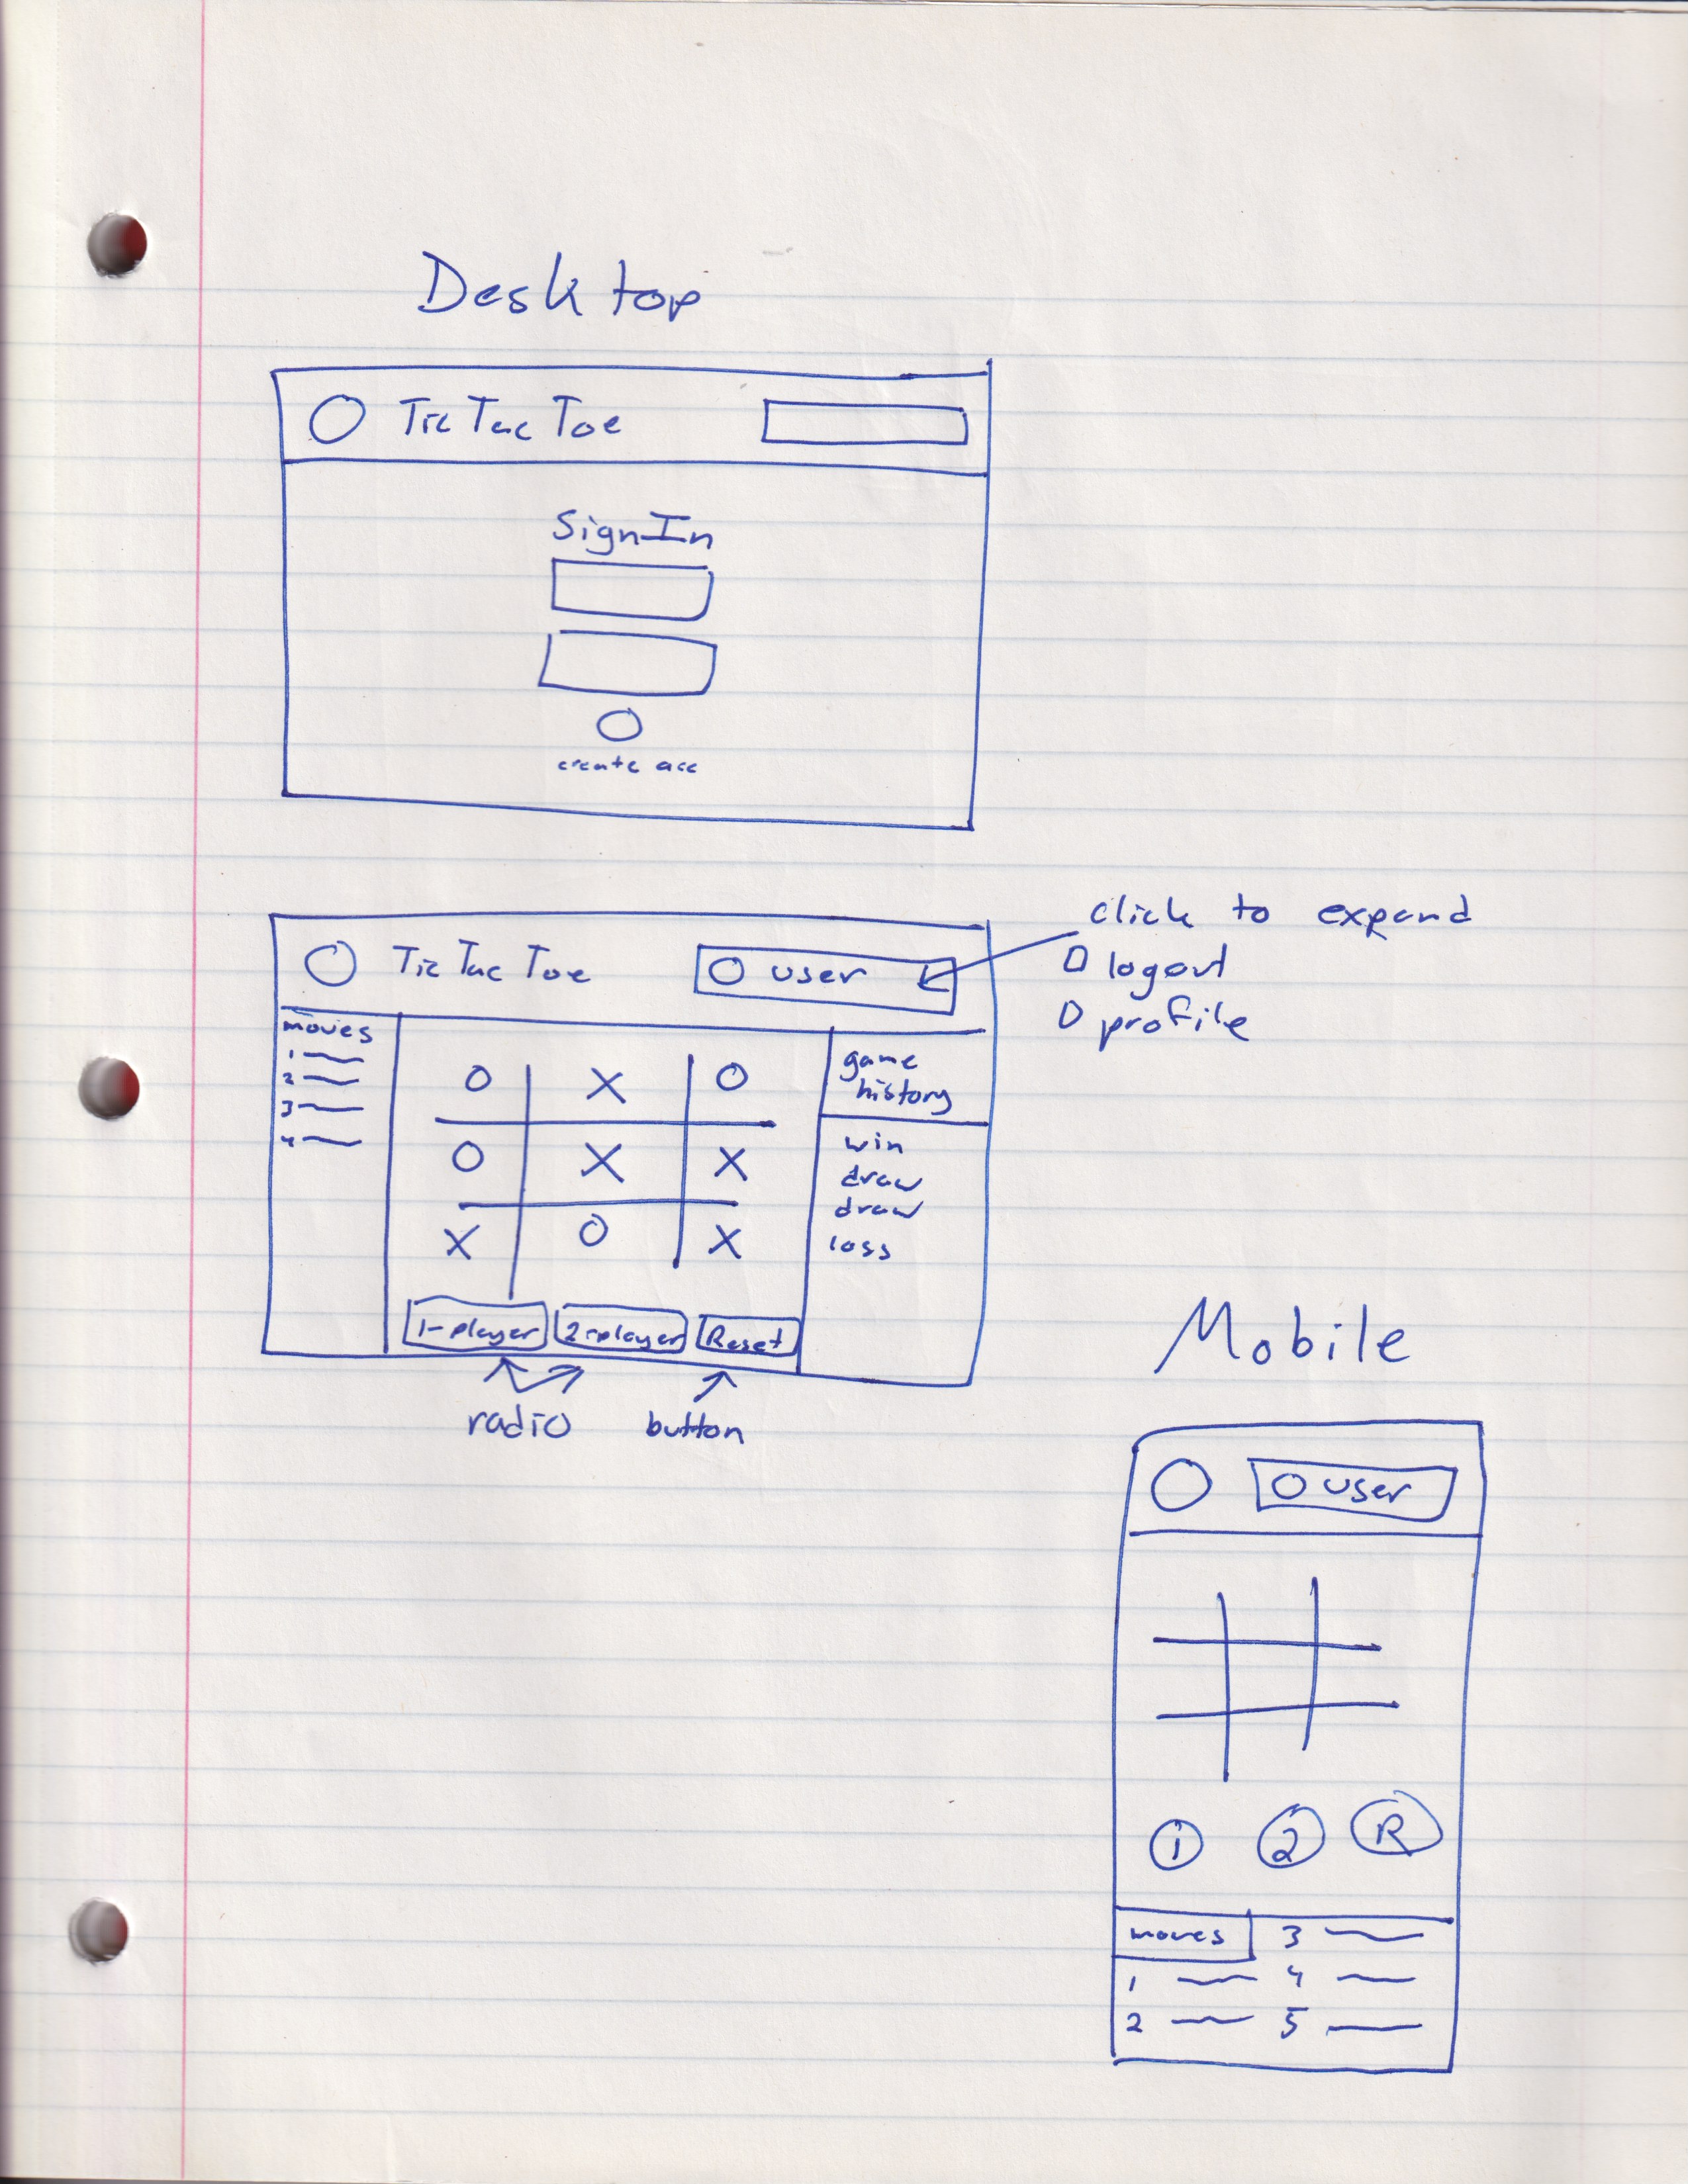 Desktop
Tic Tac Toe
Sign In
create acc
click to expand
Tic Tac Toe
user
logout
profile
moves
1
2
3
4
O X O
O X X
X O X
game
history
win
draw
draw
loss
1-player 2-player Reset
radio button
Mobile
user
1 2 R
moves 3
1 4
2 5